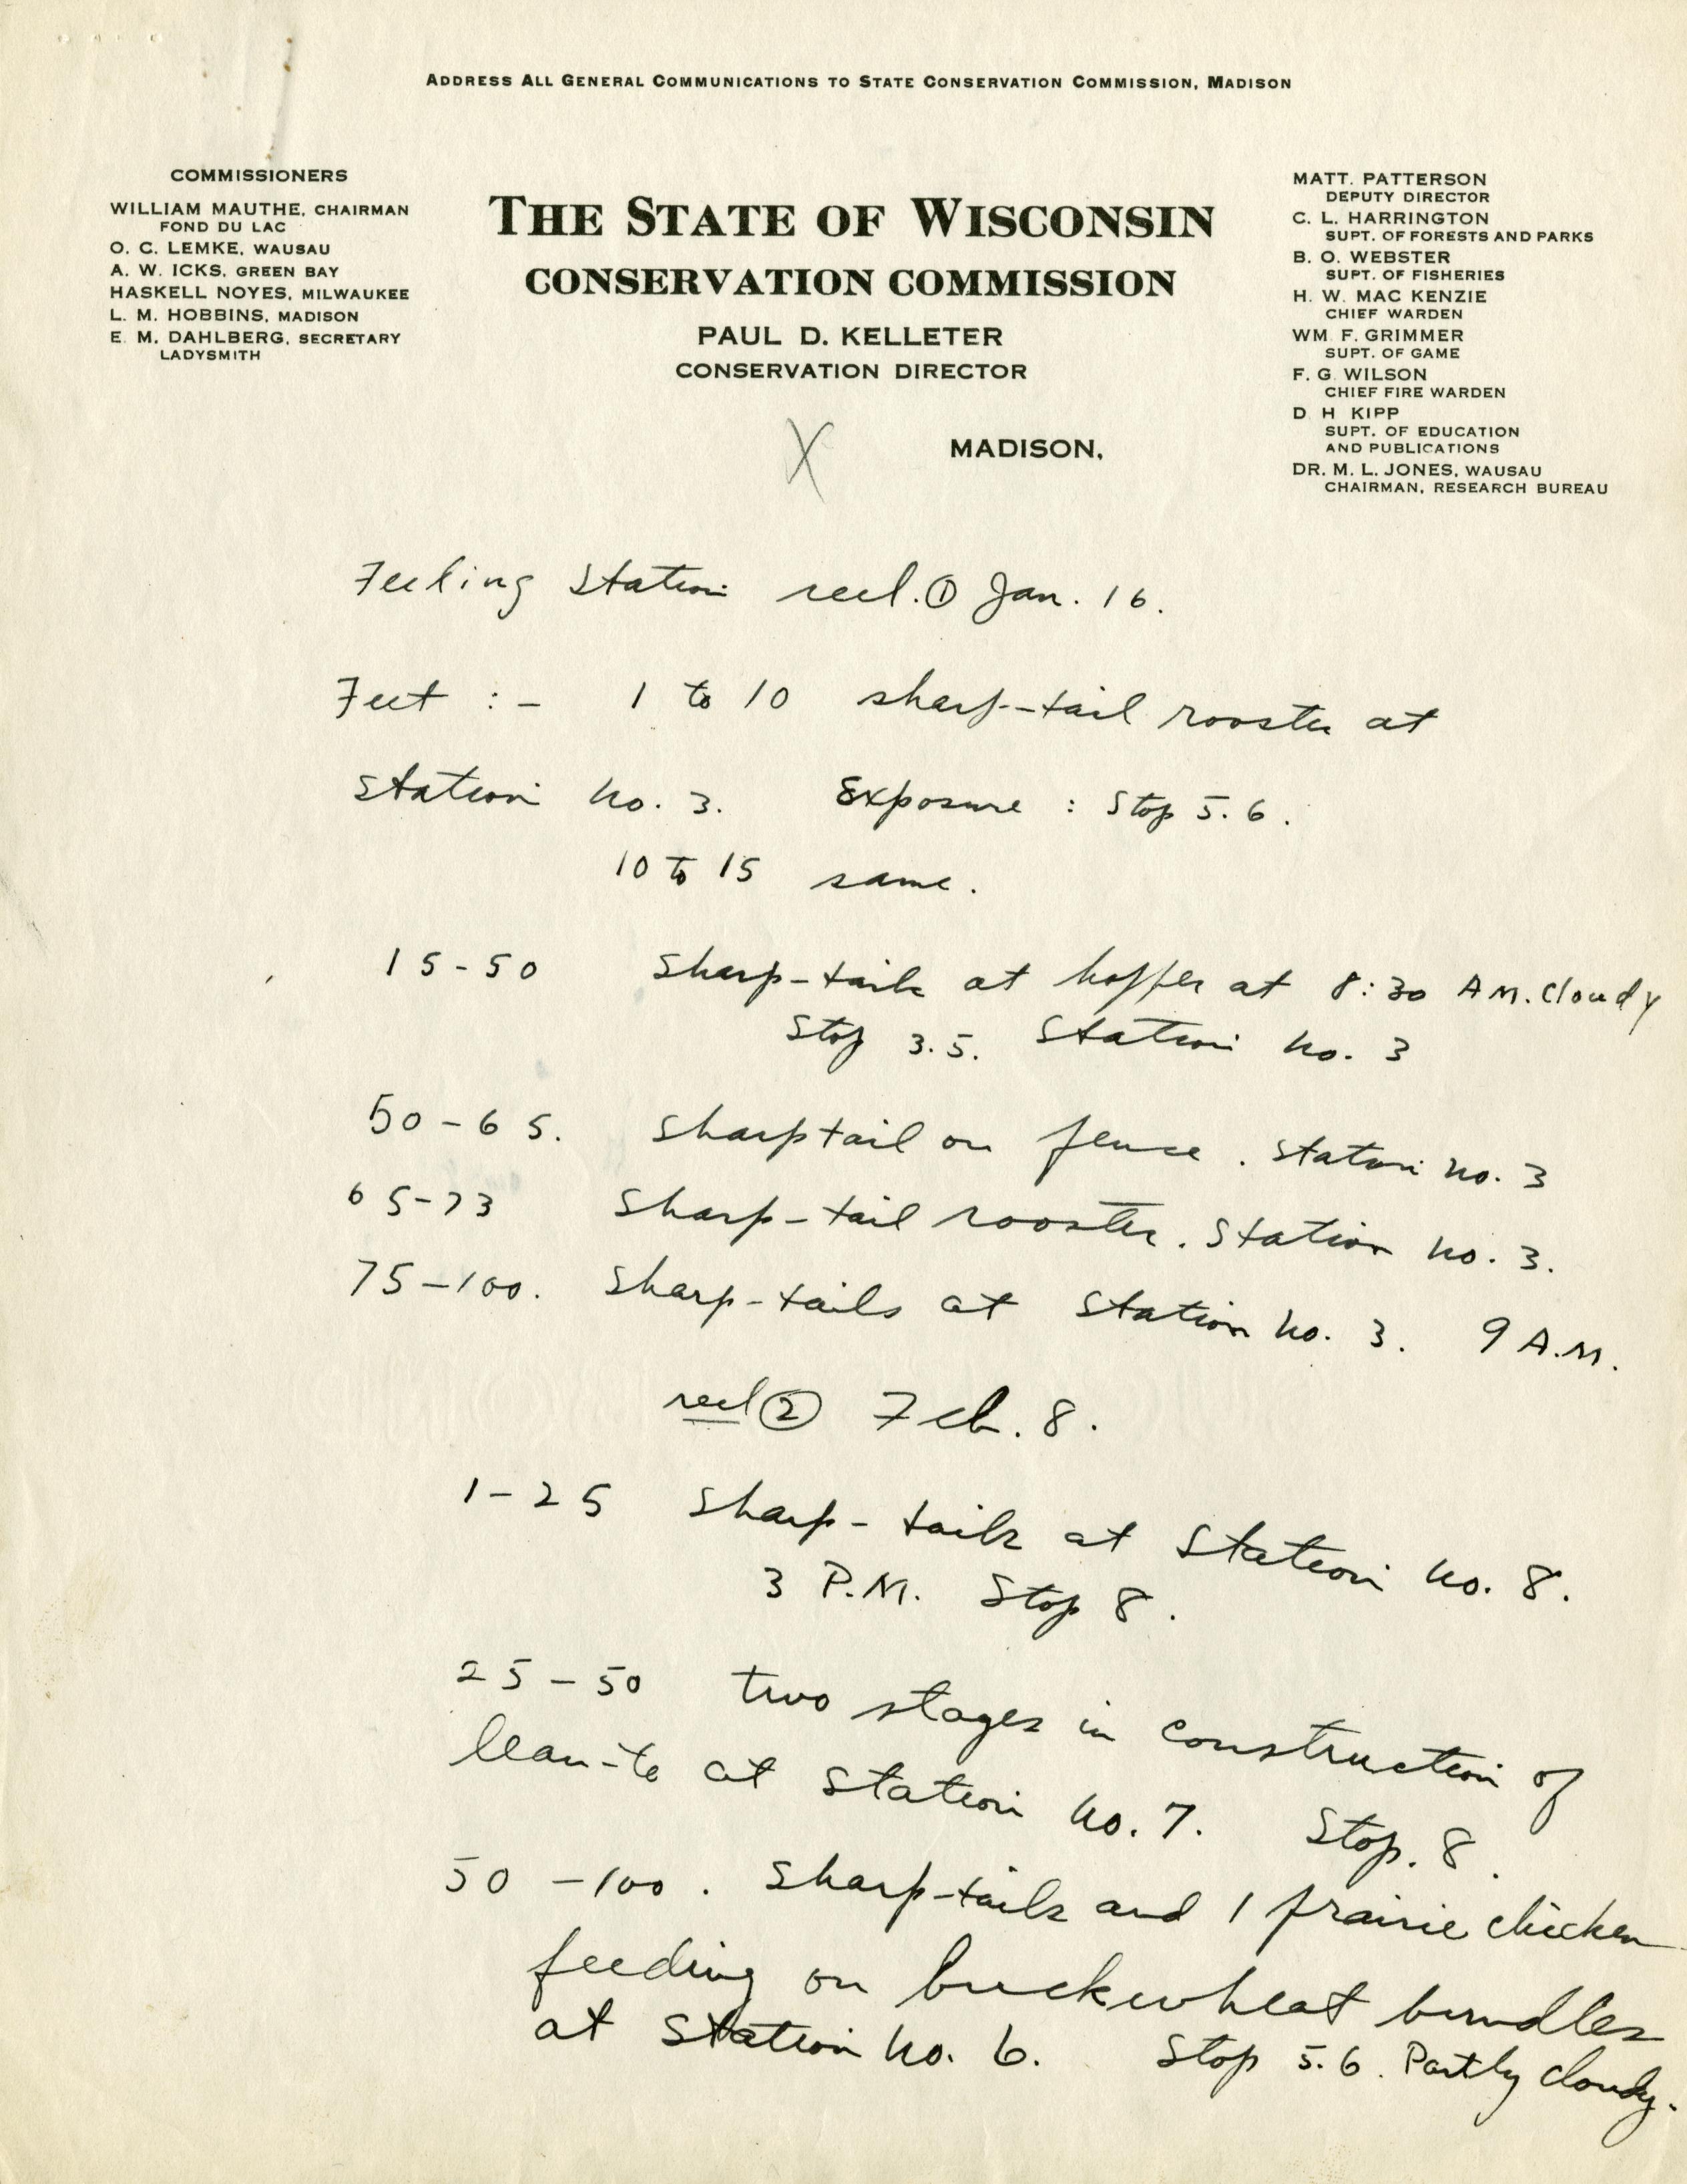 ADDRESS ALL GENERAL COMMUNICATIONS TO STATE CONSERVATION COMMISSION, MADISON
COMMISSIONERS
WILLIAM MAUTHE, CHAIRMAN
FOND DU LAC
O. C. LEMKE, WAUSAU
A. W. ICKS, GREEN BAY
HASKELL NOYES, MILWAUKEE
L. M. HOBBINS, MADISON
E. M. DAHLBERG, SECRETARY
LADYSMITH
THE STATE OF WISCONSIN
CONSERVATION COMMISSION
PAUL D. KELLETER
CONSERVATION DIRECTOR
X
MADISON,
MATT. PATTERSON
DEPUTY DIRECTOR
C. L. HARRINGTON
SUPT. OF FORESTS AND PARKS
B. O. WEBSTER
SUPT. OF FISHERIES
H. W. MAC KENZIE
CHIEF WARDEN
WM. F. GRIMMER
SUPT. OF GAME
F. G. WILSON
CHIEF FIRE WARDEN
D. H. KIPP
SUPT. OF EDUCATION
AND PUBLICATIONS
DR. M. L. JONES, WAUSAU
CHAIRMAN, RESEARCH BUREAU
Feeding Station reel. ① Jan. 16.
Feet :- 1 to 10 sharp-tail rooster at
Station no. 3. Exposure : Stop 5.6.
10 to 15 same.
15-50 Sharp-tails at hopper at 8:30 A.M. Cloudy
Stop 3.5. Station no. 3
50-65. Sharptail on fence. Station no. 3
65-73 Sharp-tail rooster. Station no. 3.
75-100. Sharp-tails at Station no. 3. 9 A.M.
reel ② Feb. 8.
1-25 Sharp-tails at Station no. 8.
3 P.M. Stop 8.
25-50 two stages in construction of
lean-to at Station no. 7. Stop. 8.
50-100. Sharp-tails and 1 prairie chicken
feeding on buckwheat bundles
at Station no. 6. Stop 5.6. Partly cloudy.